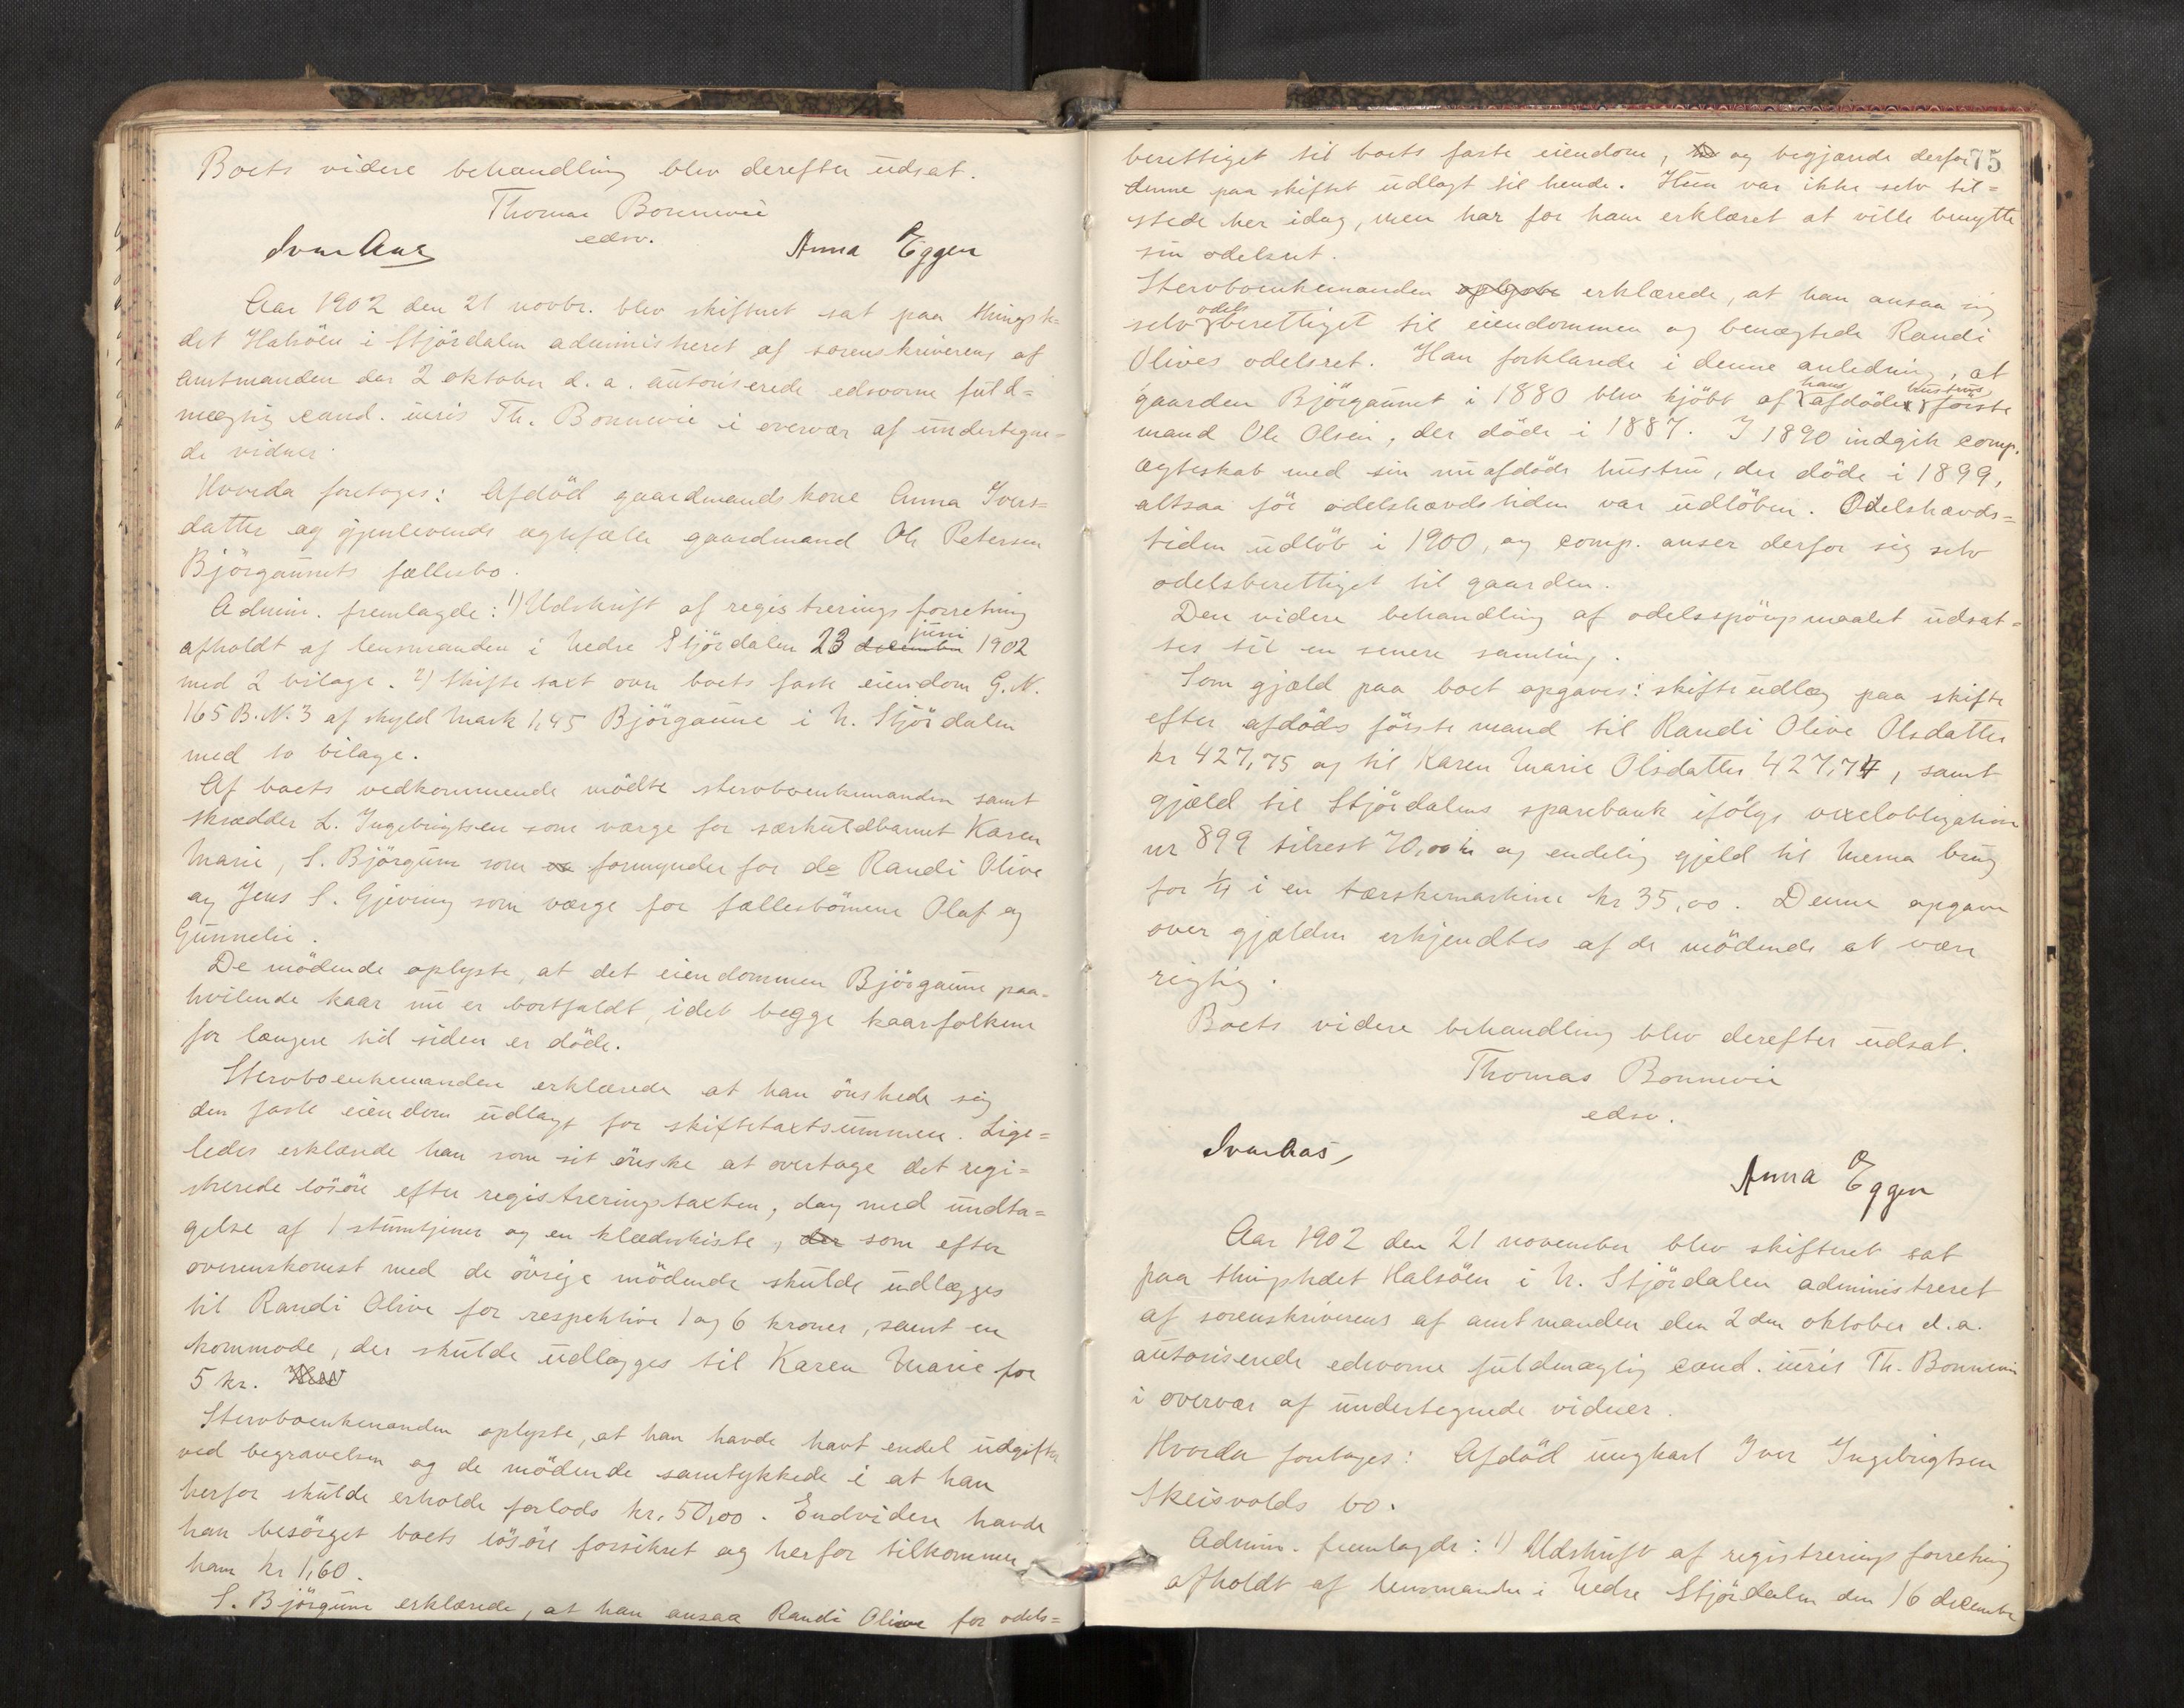 Boets videre behandling blev derefter udsat.
Thomas Bonnevie
edsv.
Ivar Aas
Anna Eggen
Aar 1902 den 21 novbr. blev skifteret sat paa thingste-
det Halsöen i Stjördalen administreret af sorenskriverens af
amtmanden den 2 oktober d. a. autoriserede edsvorne fuld=
mægtig cand. iuris Th. Bonnevie i overvær af undertegne-
de vidner.
Hvorda foretoges: Afdöd gaardmandskone Anna Ivers=
datter og gjenlevende ægtefælle gaardmand Ole Petersen
Björgaunets fællesbo.
Admin. fremlagde: 1) Udskrift af registreringsforretning
afholdt af lensmanden i Nedre Stjördalen 23 december juni 1902
med 2 bilage. 2) Skiftetaxt over boets faste eiendom G.N.
165 B.N. 3 af skyld mark 1,45 Björgaune i N. Stjördalen
med to bilage.
Af boets vedkommende mödte sterboenkemanden samt
skrædder L. Ingebrigtsen som værge for særkuldbarnet Karen
Marie, S. Björgum som formynder for do Randi Olive
og Jens S. Gjevning som værge for fællesbörnene Olaf og
Gunnelie.
De mödende oplyste, at det eiendommen Björgaune paa-
hvilende kaar nu er bortfaldt, idet begge kaarfolkene
for længere tid siden er döde.
Stervboenkemanden erklærede at han önskede sig
den faste eiendom udlagt for skiftetaxtsummen. Lige=
ledes erklærede han som sit önske at overtage det regi=
strerede lösöre efter registreringstaxten, dog med undta=
gelse af 1 stumtjener og en klædeskiste, der som efter
overenskomst med de övrige mödende skulde udlægges
til Randi Olive for respektive 1 og 6 kroner, samt en
kommode, der skulde udlægges til Karen Marie for
5 kr.
Stervboenkemanden oplyste, at han havde havt endel udgifter
ved begravelsen og de mödende samtykkede i at han
herfor skulde erholde forlods kr. 50,00. Endvidere havde
han besörget boets lösöre forsikret og herfor tilkommer
ham kr 1,60.
S. Björgum erklærede, at han ansaa Randi Olive for odels=
75
berettiget til boets faste eiendom, og begjærede derfor
denne paa skiftet udlagt til hende. Hun var ikke selv til=
stede her idag, men har for ham erklæret at ville benytte
sin odelsret.
Stervboenkemanden oplyste erklærede, at han ansaa sig
selv odelsberettiget til eiendommen og benægtede Randi
Olives odelsret. Han forklarede i denne anledning, at
gaarden Björgaunet i 1880 blev kjöbt af hans afdöde hustrus förste
mand Ole Olsen, der döde i 1887. I 1890 indgik comp.
ægteskab med sin nu afdöde hustru, der döde i 1899,
altsaa för odelshævdstiden var udlöben. Odelshævds=
tiden udlöb i 1900, og comp. anser derfor sig selv
odelsberettiget til gaarden.
Den videre behandling af odelsspörgsmaalet udsat=
tes til en senere samling.
Som gjæld paa boet opgaves: skifteudlæg paa skifte
efter afdöds förste mand til Randi Olive Olsdatter
kr 427,75 og til Karen Marie Olsdatter 427,74, samt
gjæld til Stjördalens sparebank ifölge vexelobligation
nr 899 tilrest 70,00 kr og endelig gjeld til Mesna brug
for 1/4 i en tærskemaskine kr 35,00. Denne opgave
over gjælden erkjendtes af de mödende at være
rigtig.
Boets videre behandling blev derefter udsat.
Thomas Bonnevie
edsv.
Ivar Aas
Anna Eggen
Aar 1902 den 21 november blev skifteret sat
paa thingstedet Halsöen i N. Stjördalen administreret
af sorenskriverens af amtmanden den 2den oktober d.a.
autoriserede edsvorne fuldmægtig cand. iuris Th. Bonnevie
i overvær af undertegnede vidner.
Hvorda foretoges: Afdöd ungkarl Iver Ingebrigtsen
Skeisvolds bo.
Admin. fremlagde: 1) Udskrift af registreringsforretning
afholdt af lensmanden i Nedre Stjördalen den 16 december